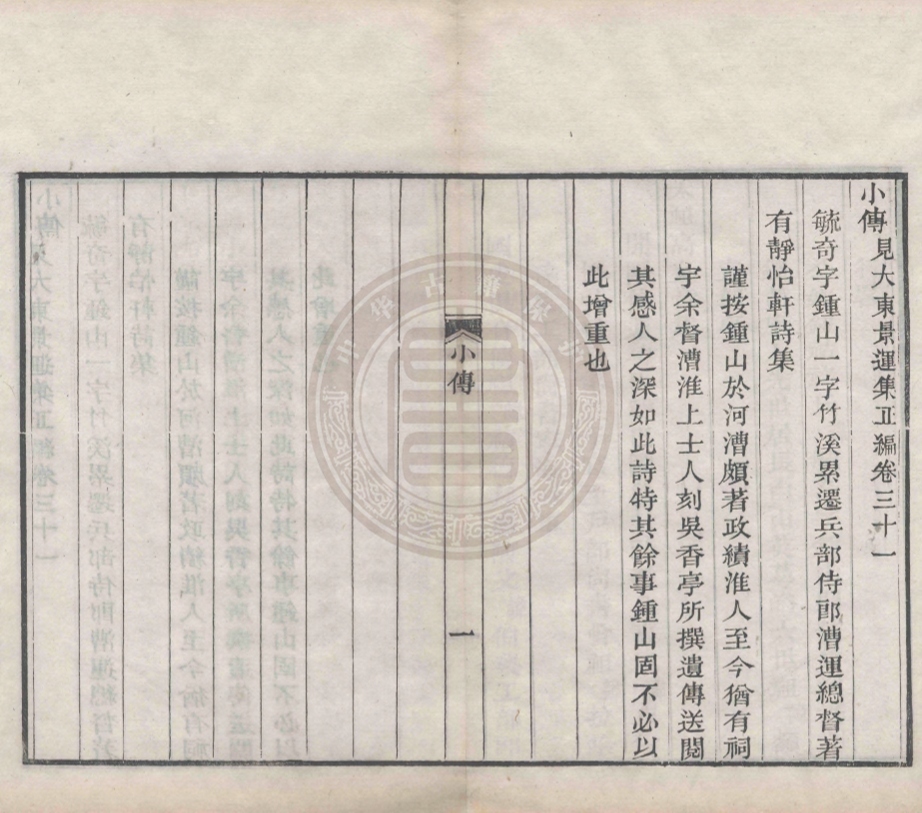 小傳見大東景運集正編卷三十一
毓奇字鍾山一字竹溪累遷兵部侍郎漕運總督著
有靜怡軒詩集
謹按鍾山於河漕頗著政績淮人至今猶有祠
宇余督漕淮上士人刻吳香亭所撰遺傳送閱
其感人之深如此詩特其餘事鍾山固不必以
此增重也
小傳
一